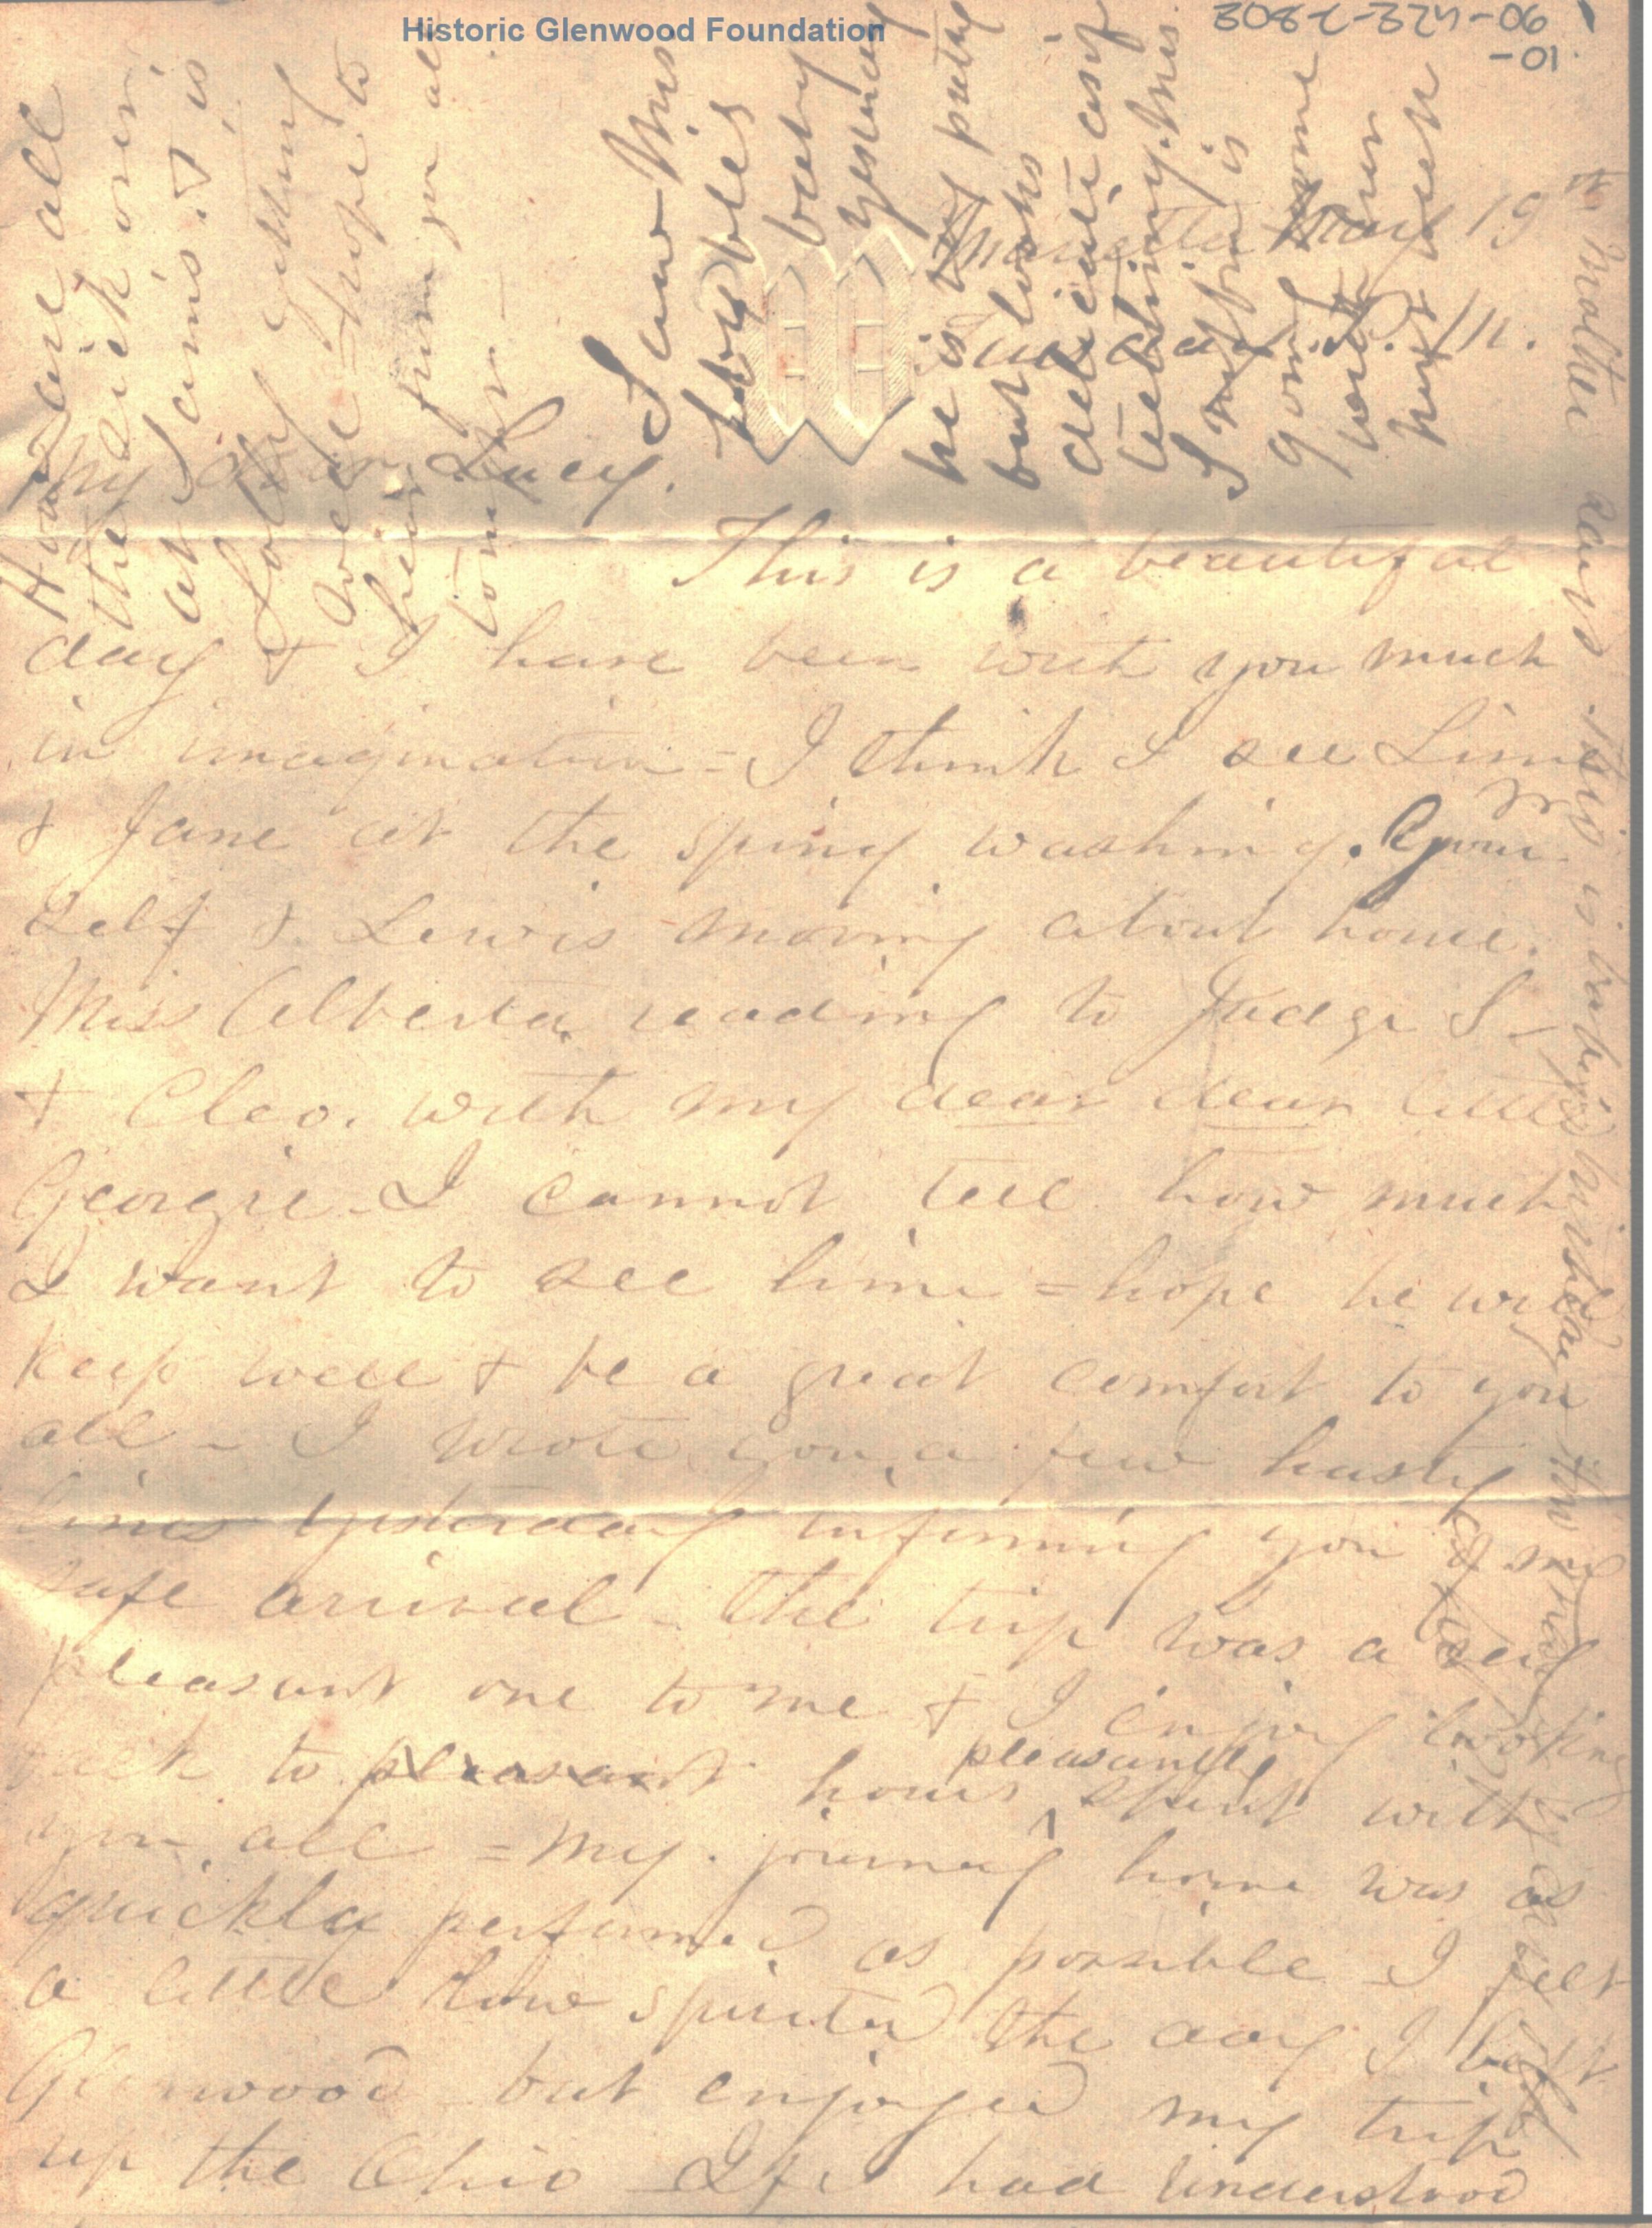 Historic Glenwood Foundation
M
Marietta May 19th
Tuesday P. M.
My dear Lucy.
This is a beautiful
day & I have been with you much
in imagination = I think I see
& Jane at the spring washing. your
self & Lewis moving about home.
Miss Alberta reading to Judge S -
& Cleo. with my dear dear little
Georgie - I cannot tell how much
I want to see him = hope he will
keep well & be a great comfort to you
all - I wrote you a few hasty
lines yesterday informing you of my
safe arrival - the trip was a very
pleasant one to me & I enjoy looking
back to pleasant hours pleasantly spent with
you all = My journey home was as
quickly performed as possible - I felt
a little low spirited the day I left
Glenwood but enjoyed my trip
up the Ohio - If I had understood
How are all
the sick ones
at
getting
well = hope to
hear from you all
I saw Mrs
baby yesterday
he is very pretty
but looks
delicate as if
teething. Mrs
is
going
her
Mother says this is baby's birthday